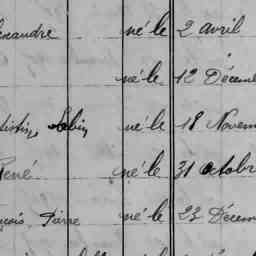 exandre né le 2 avril
né le 12 Décem
né le 18 Novem
René né le 31 octobr
çois, Pierre né le 23 Décem